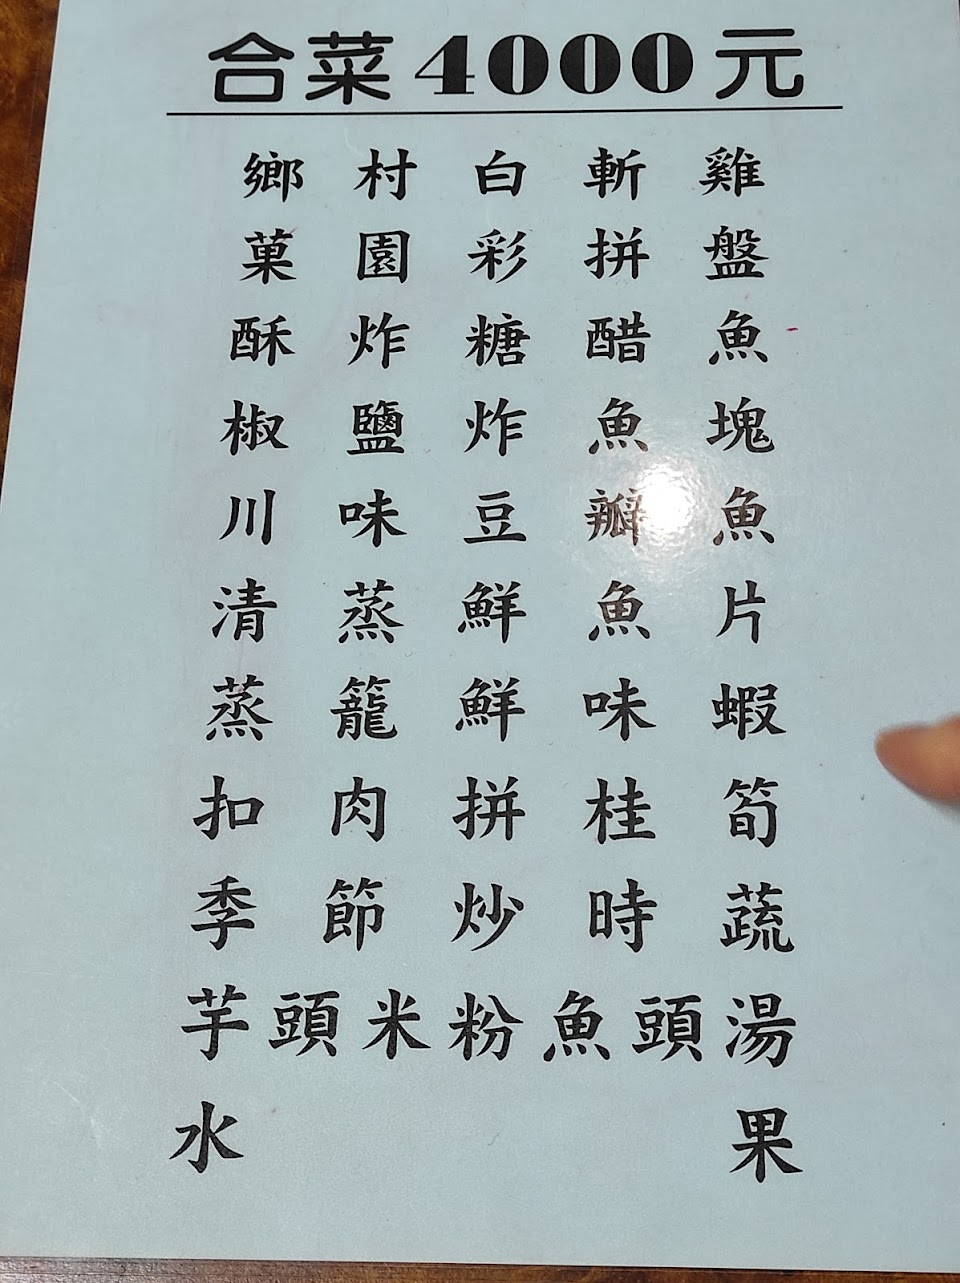 合菜4000元
鄉村白斬雞
菓園彩拼盤
酥炸糖醋魚
椒鹽炸魚塊
川味豆瓣魚
清蒸鮮魚片
蒸籠鮮味蝦
扣肉拼桂筍
季節炒時蔬
芋頭米粉魚頭湯
水果